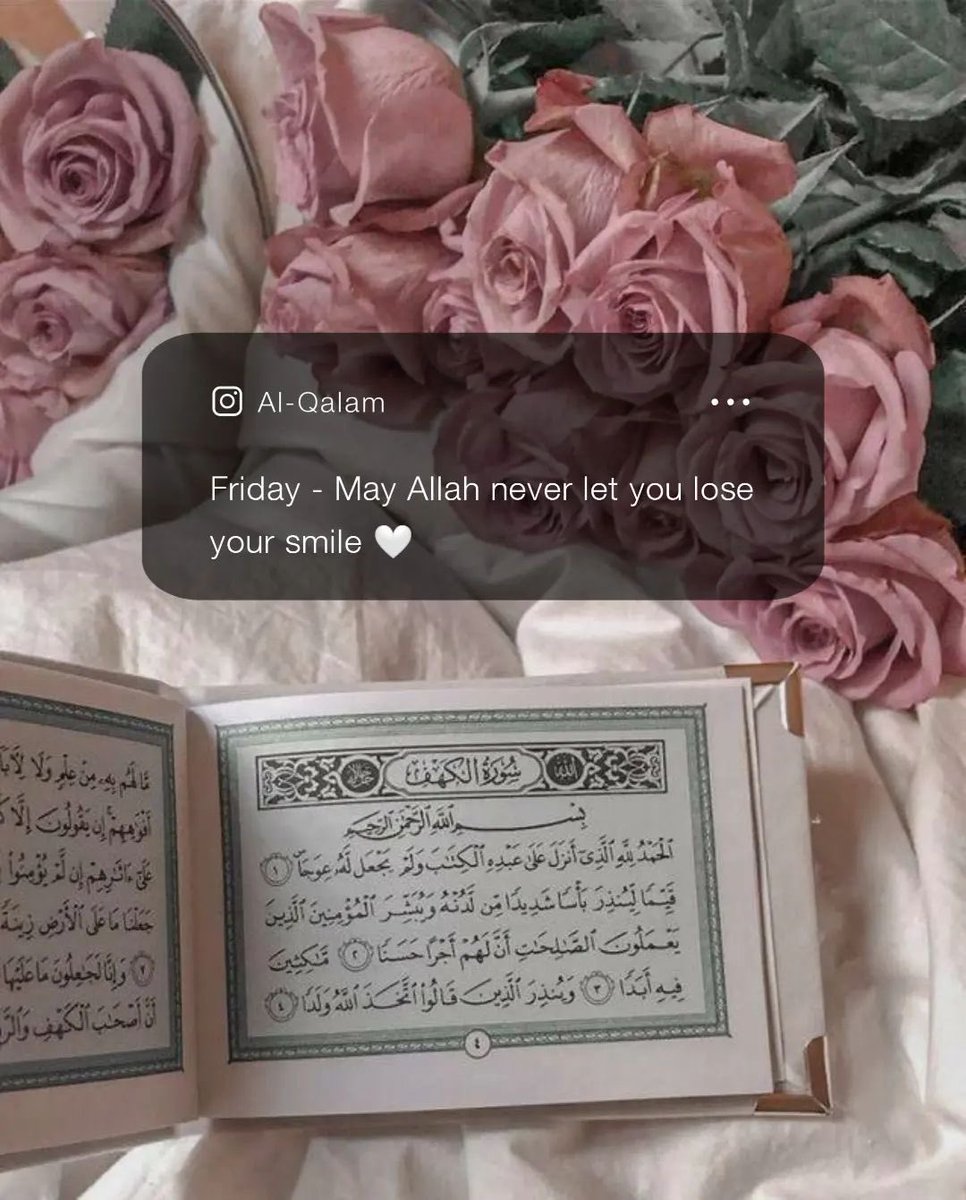 Al-Qalam
Friday - May Allah never let you lose
your smile 🤍
سُورَةُ الكَهْفِ
بِسْمِ اللَّهِ الرَّحْمَٰنِ الرَّحِيمِ
الْحَمْدُ لِلَّهِ الَّذِي أَنزَلَ عَلَىٰ عَبْدِهِ الْكِتَابَ وَلَمْ يَجْعَل لَّهُ عِوَجًا ۜ ١
قَيِّمًا لِّيُنذِرَ بَأْسًا شَدِيدًا مِّن لَّدُنْهُ وَيُبَشِّرَ الْمُؤْمِنِينَ الَّذِينَ
يَعْمَلُونَ الصَّالِحَاتِ أَنَّ لَهُمْ أَجْرًا حَسَنًا ٢ مَّاكِثِينَ
فِيهِ أَبَدًا ٣ وَيُنذِرَ الَّذِينَ قَالُوا اتَّخَذَ اللَّهُ وَلَدًا ٤
٤
مَّا لَهُم بِهِ مِنْ عِلْمٍ وَلَا
أَفْوَاهِهِمْ إِن يَقُولُونَ إِلَّا
عَلَىٰ ءَاثَارِهِمْ إِن لَّمْ يُؤْمِنُوا
جَعَلْنَا مَا عَلَى الْأَرْضِ زِينَةً
٧ وَإِنَّا لَجَاعِلُونَ مَا عَلَيْهَا
أَنَّ أَصْحَابَ الْكَهْفِ